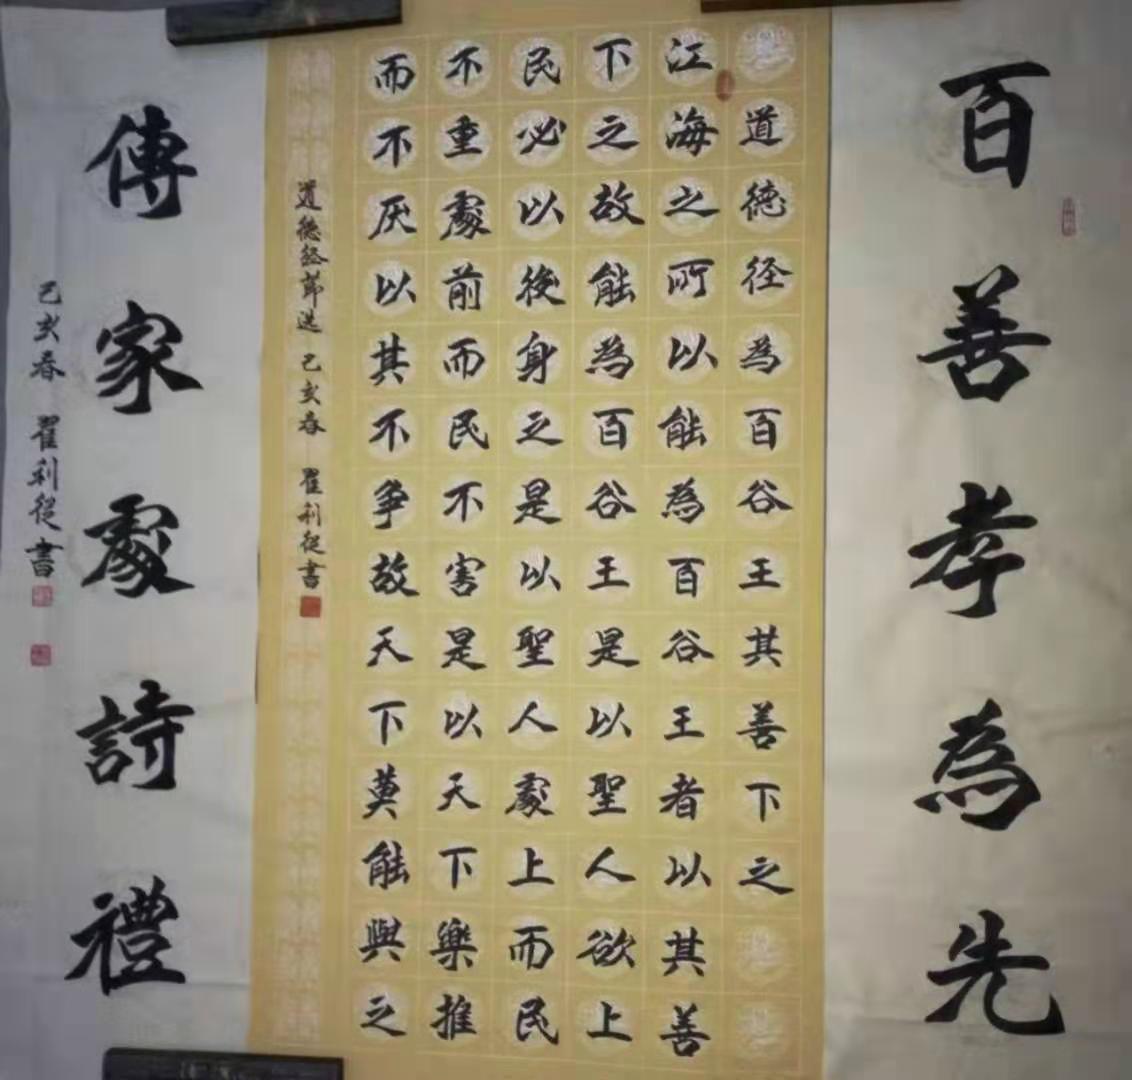 百善孝為先
道德径為百谷王其善下之
江海之所以能為百谷王者以其善
下之故能為百谷王是以聖人欲上
民必以後身之是以聖人處上而民
不重處前而民不害是以天下樂推
而不厌以其不争故天下莫能與之
道德經節选 己亥春 翟利從書
傳家處詩禮
己亥春 翟利從書